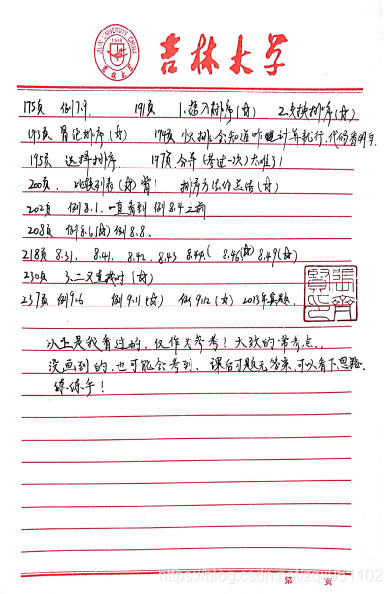 JILIN UNIVERSITY CHINA
1946
吉林大学
175页 例7.9. 191页 1.插入排序(☆) 2.交换排序(☆)
193页 冒泡排序(☆) 194页 快排会知道咋跑计算就行.代码看明白.
195页 选择排序. 197页 合并(考过一次)大题了!
200页. 比较列表(☆)背! 排序方法的总结(☆)
202页 例8.1.一直看到例8.4之前
208页 例8.6(☆)例8.8、
218页 8.31. 8.41. 8.42. 8.43 8.44( 8.46(☆) 8.49(☆)
230页 3.二叉查找树(☆)
237页 例9.6 例9.11(☆) 例9.12(☆) 2013年真题.
以上是我看过的,仅作为参考!大致的常考点.
没画到的,也可能会考到、课后习题无答案,可以看下思路.
练练手!
第 页
https://blog.csdn.net/zq2051102